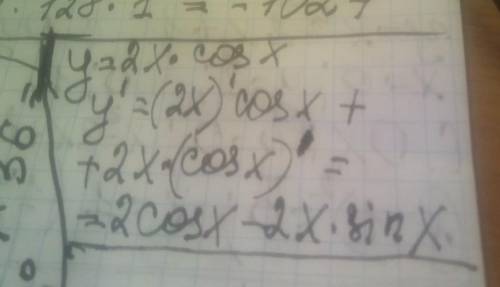 · 128 · 1 = - 1024
y = 2x · cos x
y' = (2x)' cos x +
+ 2x · (cos x)' =
= 2 cos x - 2x · sin x.